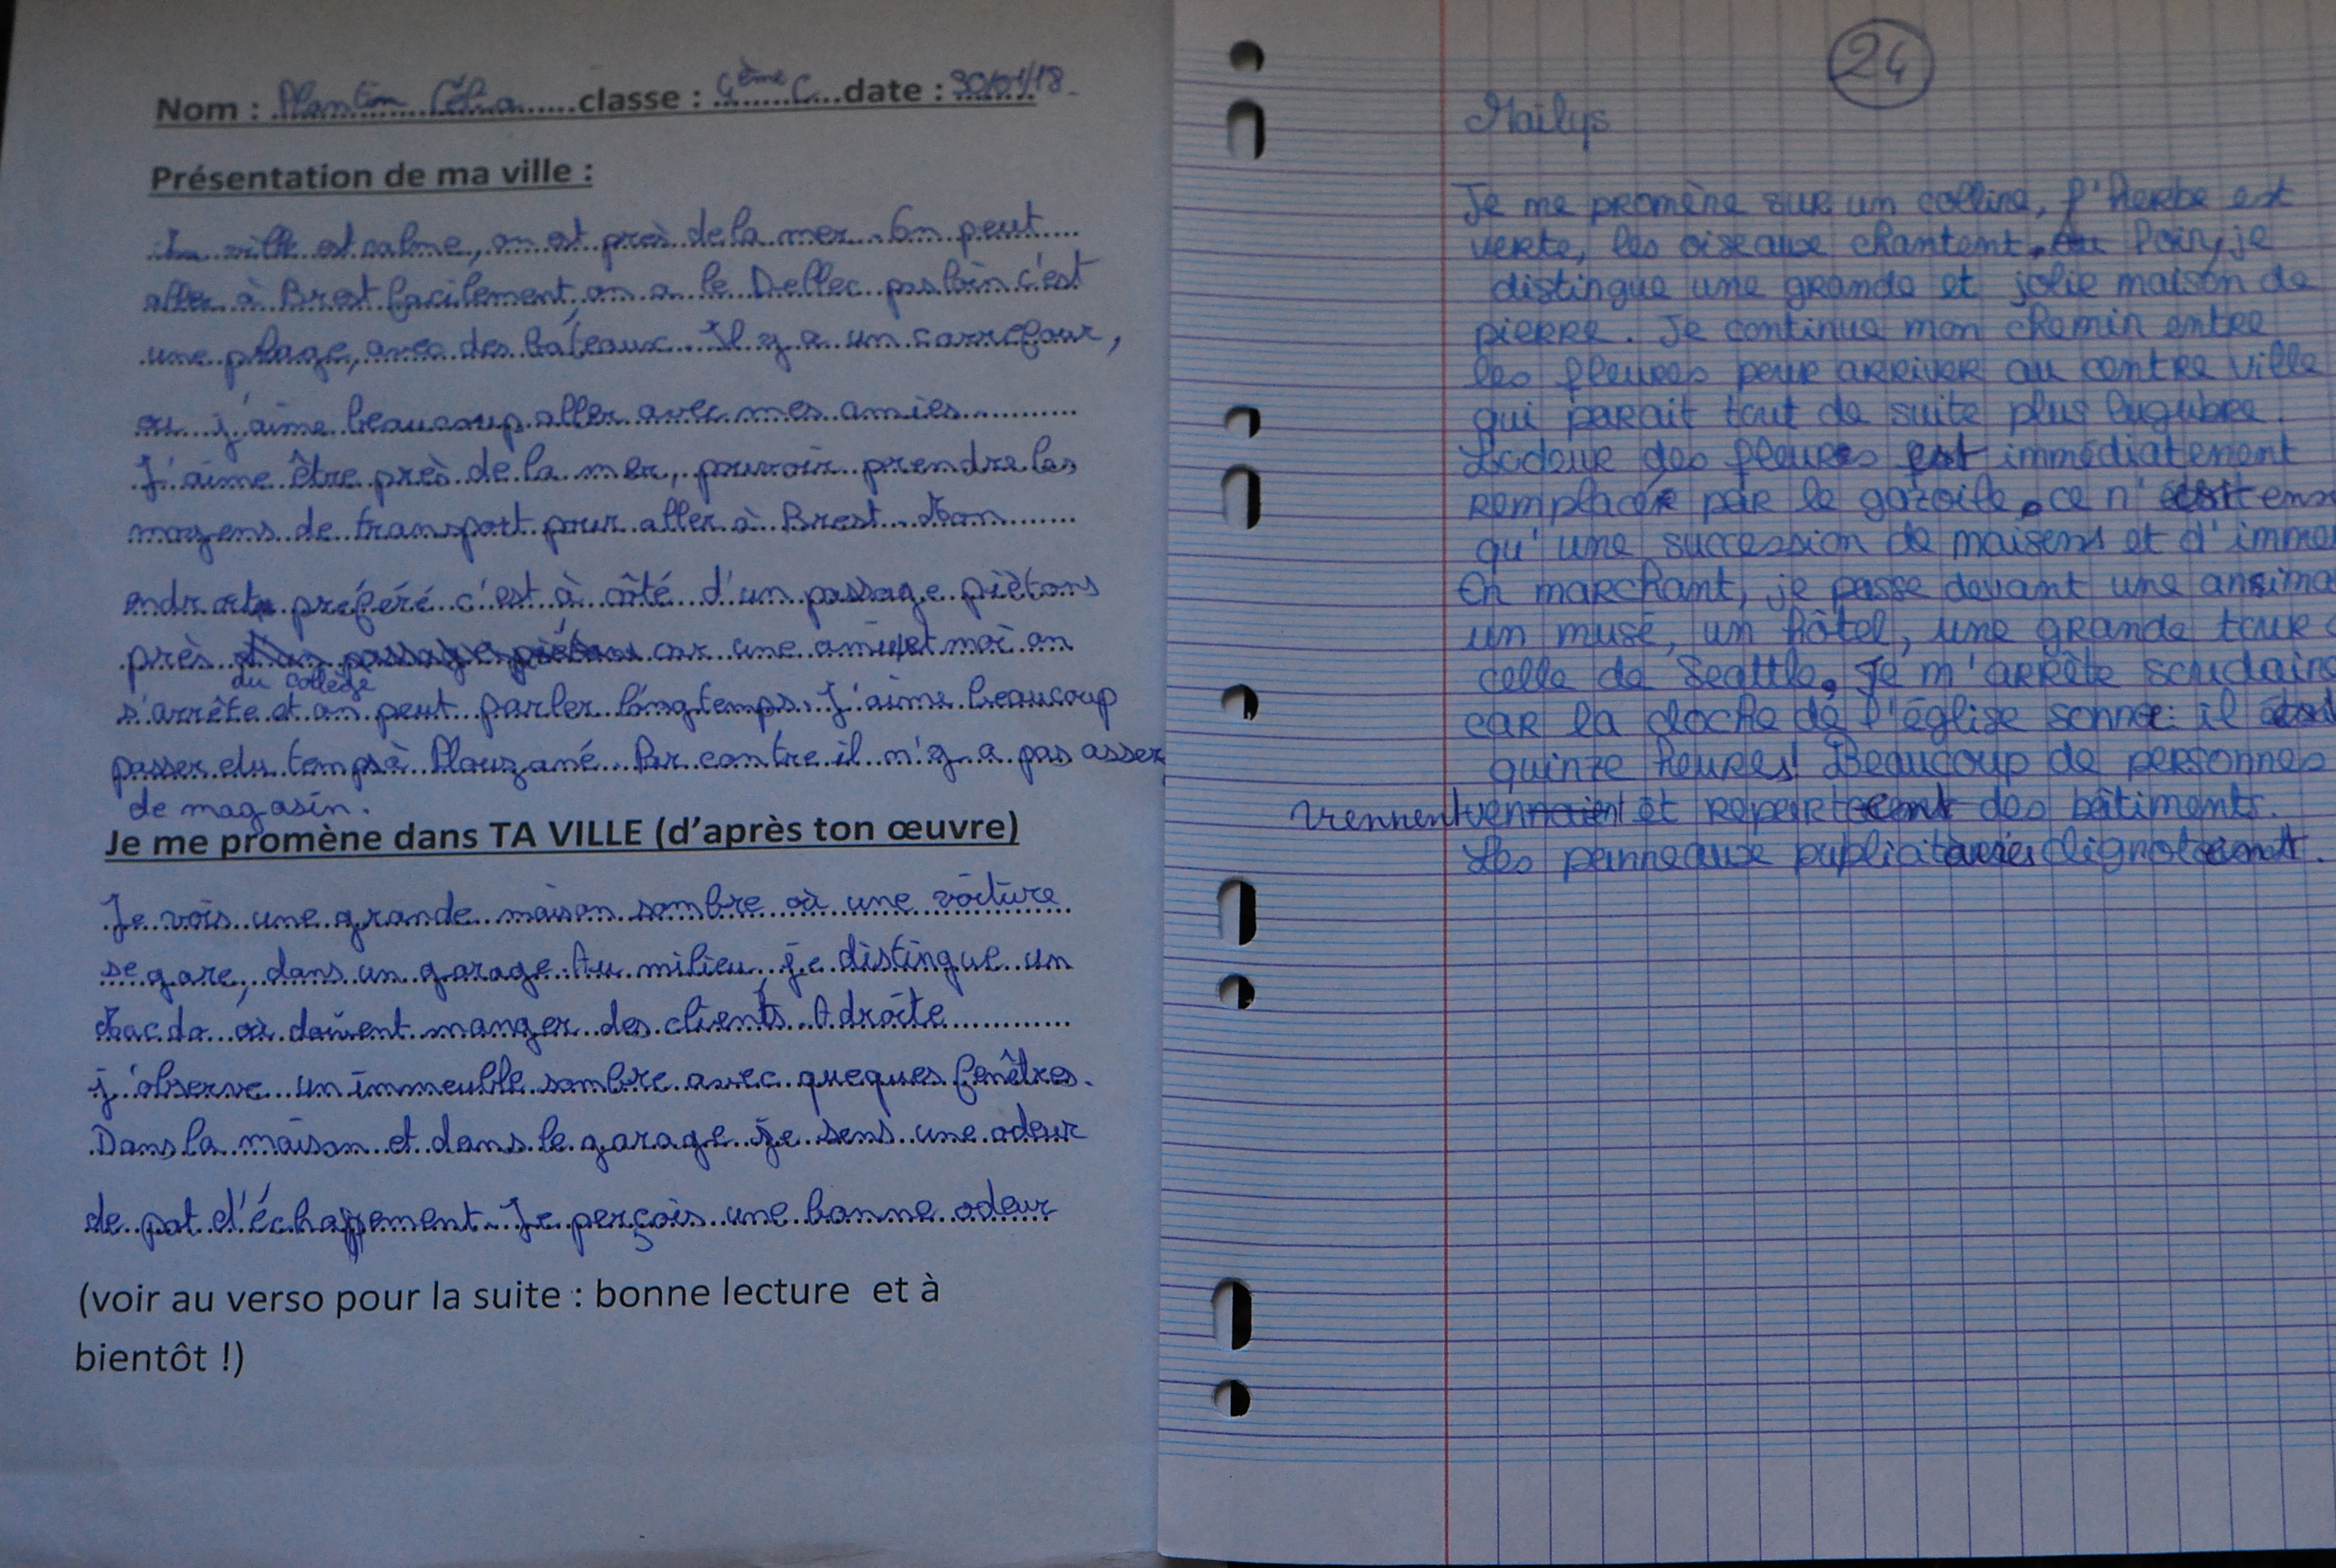 Nom : Plantin Célia classe : 4ème C date : 30/01/18
Présentation de ma ville :
La ville est calme, on est près de la mer. On peut
aller à Brest facilement, on a le Dellec pas loin c'est
une plage, avec des bateaux. Il y a un carrefour,
ou j'aime beaucoup aller avec mes amies.
J'aime être près de la mer, pouvoir prendre les
moyens de transport pour aller à Brest. Mon
endroit préféré c'est à côté d'un passage piètons
près du collège car une amie et moi on
s'arrête et on peut parler longtemps. J'aime beaucoup
passer du temps à Plouzané. Par contre il n'y a pas assez
de magasin.
Je me promène dans TA VILLE (d'après ton œuvre)
Je vois une grande maison sombre où une voiture
se gare, dans un garage. Au milieu, je distingue un
Macdo où doivent manger des clients. A droite
j'observe un immeuble sombre avec queques fenêtres.
Dans la maison et dans le garage je sens une odeur
de pot d'échappement. Je perçois une bonne odeur
(voir au verso pour la suite : bonne lecture et à
bientôt !)
24
Maïlys
Je me promène sur un colline, l'herbe est
verte, les oiseaux chantent. Au loin, je
distingue une grande et jolie maison de
pierre. Je continue mon chemin entre
les fleures pour arriver au centre ville
qui parait tout de suite plus lugubre.
L'odeur des fleures est immédiatement
remplacée par le gazoile, ce n'est
qu'une succession de maisons et d'
En marchant, je passe devant une
un musé, un hôtel, une grande tour
celle de Seattle. Je m'arrête
car la cloche de l'église sonne: il
quinze heures! Beaucoup de personnes
viennent et repartent des bâtiments.
Les panneaux publicitaires clignotent.